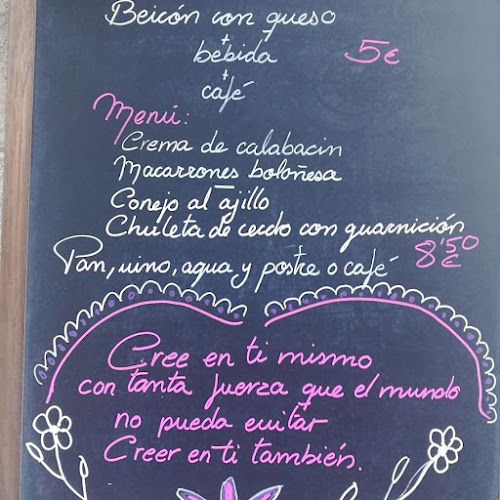 Beicón con queso
+
bebida 5€
+
café
Menú:
Crema de calabacin
Macarrones boloñesa
—
Conejo al ajillo
Chuleta de cerdo con guarnición
Pan, vino, agua y postre o café 8'50 €
Cree en ti mismo
con tanta fuerza que el mundo
no pueda evitar
Creer en ti también.